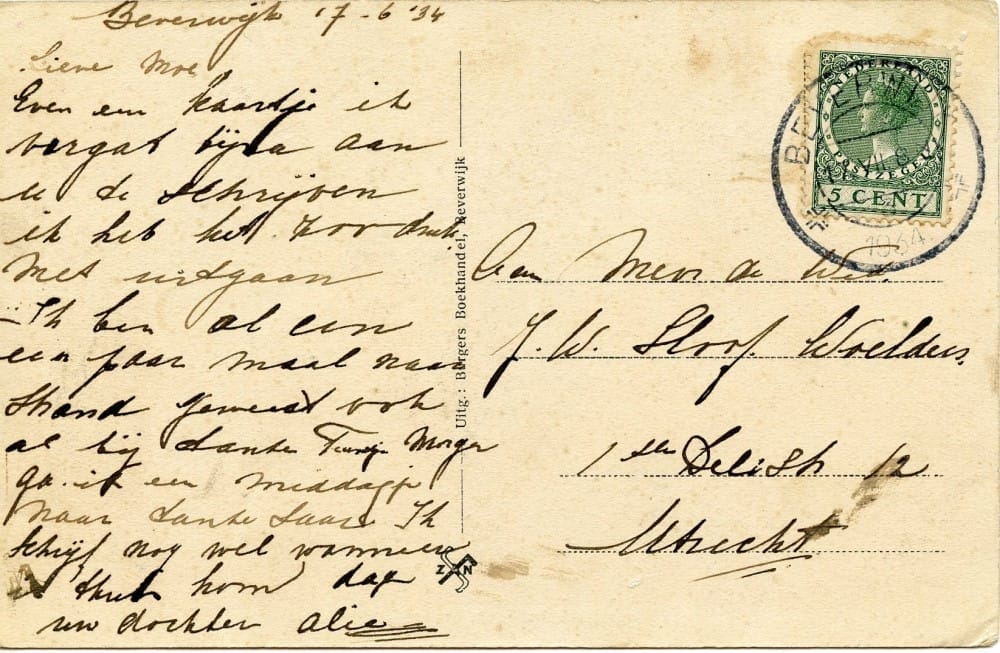 Beverwijk 17-6'34
Lieve Moe
Even een kaartje ik
vergat bijna aan
u te schrijven
ik heb het zoo druk
met uitgaan
Ik ben al een
een paar maal naar
strand geweest ook
al bij tante Morgen
ga ik een middagje
naar tante Saar Ik
schrijf nog wel wanneer
ik thuis kom dag
uw dochter Alie
Uitg.: Burgers Boekhandel, Beverwijk
Z N
NEDERLAND
POSTZEGEL
5 CENT
BEVERWIJK
1934
Aan Mevr de Wed.
J. W. Sloof. Woelders.
1ste Delistr 12
Utrecht